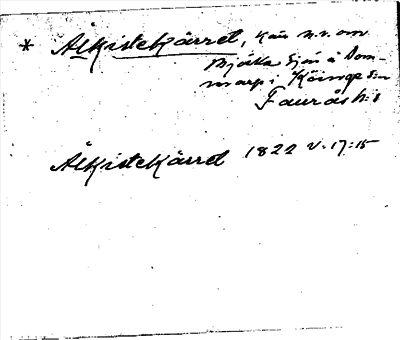 * Ålkistekärret, Kär n.v. om
Mjöska Sjön å Dom-
marp i Köinge sn
Faurås h:d
Ålkistekärret 1822 V:17:15